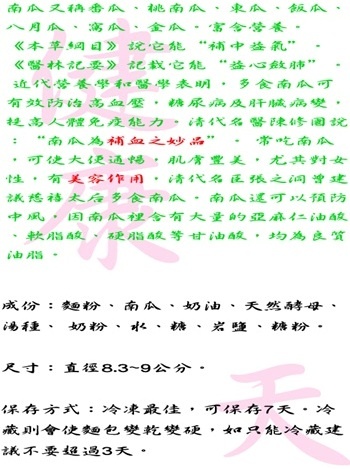 南瓜又稱番瓜、桃南瓜、東瓜、飯瓜、
八月瓜、窩瓜、金瓜。富含營養。
《本草綱目》說它能“補中益氣”。
《醫林記要》記載它能“益心斂肺”。
近代營養學和醫學表明，多食南瓜可
有效防治高血壓，糖尿病及肝臟病變，
提高人體免疫能力。清代名醫陳修園說
：“南瓜為補血之妙品”。常吃南瓜
，可使大便通暢，肌膚豐美，尤其對女
性，有美容作用，清代名臣張之洞曾建
議慈禧太后多食南瓜。南瓜還可以預防
中風，因南瓜裡含有大量的亞麻仁油酸
、軟脂酸、硬脂酸等甘油酸，均為良質
油脂。
健康
成份：麵粉、南瓜、奶油、天然酵母、
湯種、奶粉、水、糖、岩鹽、糖粉。
尺寸：直徑8.3~9公分。
保存方式：冷凍最佳，可保存7天。冷
藏則會使麵包變乾變硬，如只能冷藏建
議不要超過3天。
天